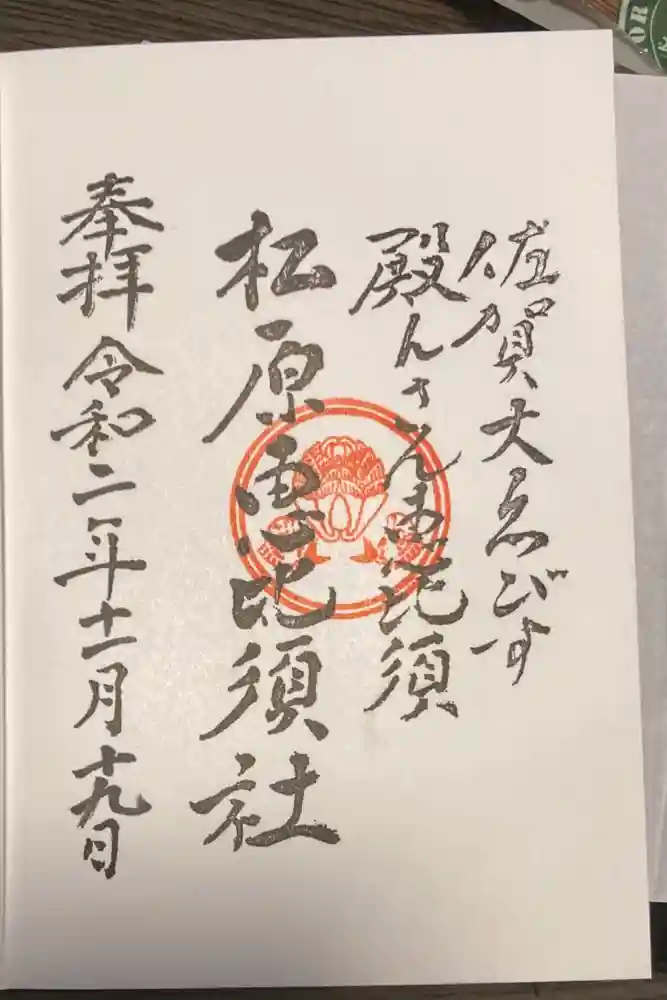 佐賀大ゑびす
殿んさん恵比須
松原恵比須社
奉拝 令和二年十一月十九日